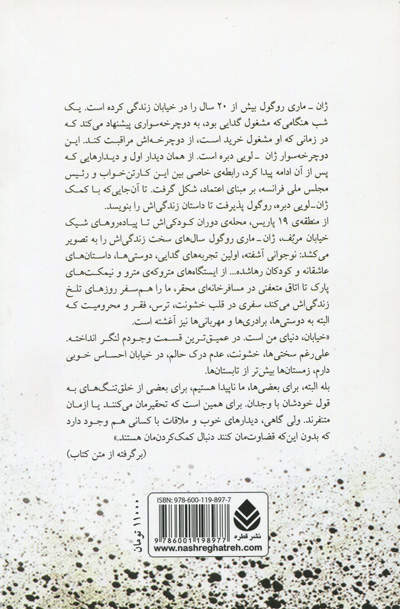 ژان ـ ماری روگول بیش از ۲۰ سال را در خیابان زندگی کرده است. یک
شب هنگامی‌که مشغول گدایی بود، به دوچرخه‌سواری پیشنهاد می‌کند که
در زمانی که او مشغول خرید است، از دوچرخه‌اش مراقبت کند. این
دوچرخه‌سوار ژان ـ لویی دبره است. از همان دیدار اول و دیدارهایی که
پس از آن ادامه پیدا کرد، رابطه‌ی خاصی بین این کارتن‌خواب و رئیس
مجلس ملی فرانسه، بر مبنای اعتماد، شکل گرفت. تا آن‌جایی‌که با کمک
ژان-لویی دبره، روگول پذیرفت تا داستان زندگی‌اش را بنویسد.
از منطقه‌ی ۱۹ پاریس، محله‌ی دوران کودکی‌اش تا پیاده‌روهای شیک
خیابان مرتُف، ژان-ماری روگول سال‌های سخت زندگی‌اش را به تصویر
می‌کشد: نوجوانی آشفته، اولین تجربه‌های گدایی، دوستی‌ها، داستان‌های
عاشقانه و کودکان رهاشده... از ایستگاه‌های متروکه‌ی مترو و نیمکت‌های
پارک تا اتاق متعفنی در مسافرخانه‌ای محقر، ما را هم‌سفر روزهای تلخ
زندگی‌اش می‌کند، سفری در قلب خشونت، ترس، فقر و محرومیت که
البته به دوستی‌ها، برادری‌ها و مهربانی‌ها نیز آغشته است.
«خیابان، دنیای من است. در عمیق‌ترین قسمت وجودم لنگر انداخته.
علی‌رغم سختی‌ها، خشونت، عدم درک حالم، در خیابان احساس خوبی
دارم، زمستان‌ها بیش‌تر از تابستان‌ها.
بله البته، برای بعضی‌ها، ما ناپیدا هستیم، برای بعضی از خلق‌تنگ‌های به
قول خودشان با وجدان. برای همین است که تحقیرمان می‌کنند یا ازمان
متنفرند. ولی گاهی، دیدارهای خوب و ملاقات با کسانی هم وجود دارد
که بدون این‌که قضاوت‌مان کنند دنبال کمک‌کردن‌مان هستند.»
(برگرفته از متن کتاب)
ISBN: 978-600-119-897-7
9786001198977
www.nashreghatreh.com
نشر قطره
۱۱۰۰۰ تومان